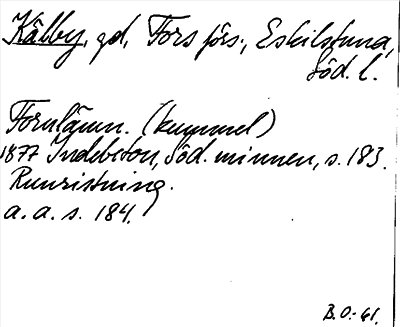 Kälby, gd, Fors förs., Eskilstuna,
Söd. l.
Fornlämn. (kummel)
1877 Indebetou, Söd. minnen, s. 183.
Runristning.
a. a. s. 184.
B.O:-61.